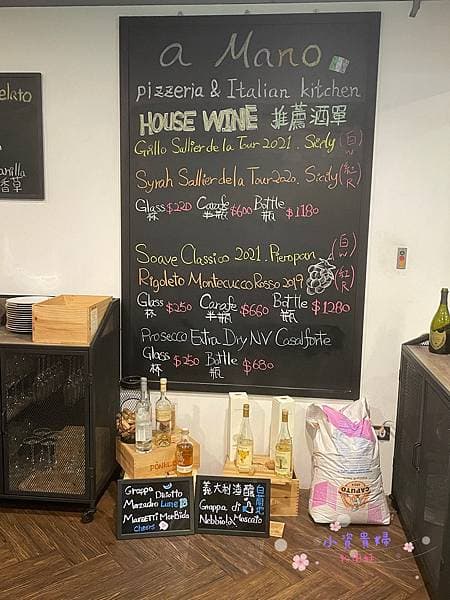 elato
anilla
香草
a Mano
pizzeria & Italian kitchen
HOUSE WINE 推薦酒單
Grillo Sallier de la Tour 2021. Sicily (白W)
Syrah Sallier de la Tour 2020. Sicily (紅R)
Glass杯 $220 Carafe半瓶 $600 Bottle瓶 $1180
Soave Classico 2021. Pieropan (白W)
Rigoleto Montecucco Rosso 2019 (紅R)
Glass杯 $250 Carafe半瓶 $660 Bottle瓶 $1280
Prosecco Extra Dry NV Casalforte
Glass杯 $250 Bottle瓶 $680
Grappa Distotto
Marzadro Lune
Marzetti Morbida
Cheers
義大利渣釀白蘭地
Grappa di
Nebbiolo & Moscato
CAPUTO
小資貴婦